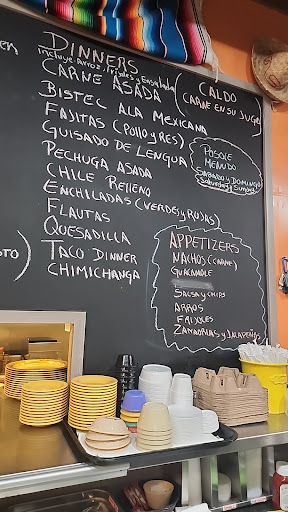 DINNERS
Incluye: Arroz, Frijoles y Ensalada
CARNE ASADA
BISTEC ALA MEXICANA
FAJITAS (POLLO y RES)
GUISADO DE LENGUA
PECHUGA ASADA
CHILE RELLENO
ENCHILADAS (VERDES y ROJAS)
FLAUTAS
QUESADILLA
TACO DINNER
CHIMICHANGA
CALDO
(CARNE EN SU JUGO)
POSOLE
MENUDO
SABADO y DOMINGO
Saturdays Sunday
APPETIZERS
NACHOS (CARNE)
GUACAMOLE
SALSA y CHIPS
ARROS
FRIJOLES
ZANAORIAS y JALAPEÑOS